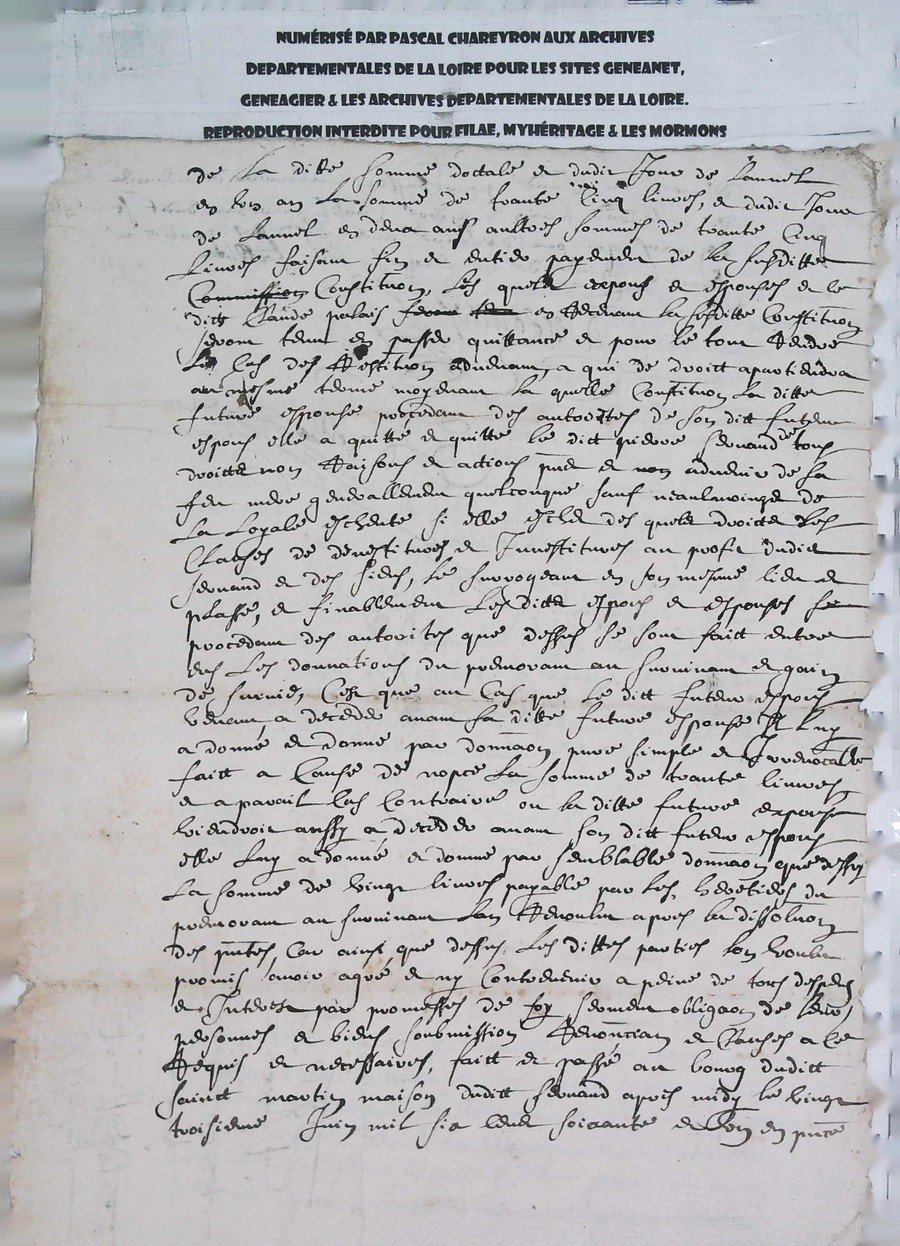 NUMÉRISÉ PAR PASCAL CHAREYRON AUX ARCHIVES
DEPARTEMENTALES DE LA LOIRE POUR LES SITES GENEANET,
GENEAGIER & LES ARCHIVES DEPARTEMENTALES DE LA LOIRE.
REPRODUCTION INTERDITE POUR FILAE, MYHÉRITAGE & LES MORMONS
de la ditte somme doctale et dudit Jour de lannel
en un an la somme de trante cinq livres, et dudit Jour
de lannel en deux ans aultres sommes de trante cinq
livres faisant fin et entier payement de la susditte
Constituon, les quels espoux et espouses et le
dict Claude palais en Recevant la susditte Constituon
seront tenus en passer quittance et pour le tout Rendre
le cas des Restituon advenant, a qui de droict apartiendra
au mesme terme moyenant la quelle Constituon la ditte
future espouse procedant des autorites de son dit futeur
espoux elle a quitté et quitte le dict pierre de tous
droitts non Raisons et actions pnts et non advenir de la
feu mere generallement quelconque sauf neanlmoings de
La Loyale escheute si elle eschet des quels droitts les
Clauses de devestitures et Investitures au profit dudit
et des siens, le survogeant en son mesme lieu et
plasse, et finablement lesditts espoux et espouses
procedant des autorites que dessus se sont faict entre
eux les donnations du premorant au survivant et gain
de survie, Cest que au Cas que le dit futeur espoux
venant a deceder avant la ditte future espouse Il luy
a donné et donne par donnaon pure simple et Irrevocable
faict a Cause de nopce la somme de trante livres
et a pareil Cas Contraire ou la ditte future espouse
viendroit aussy a deceder avant son dit futeur espoux
elle luy a donné et donne par semblable donnaon que dessus
La somme de vingt livres payable par les heretiers du
premorant au survivant lan Revoulu apres la dissoluon
des pntes, Car ainsi que dessus les dittes parties lon voulu
promis avoir agré et ny Contrevenir a peine de tous despens
et Interest par promesses de foy serment obligaon de leurs
personnes et biens soubmission Renonciaon et Clauses a ce
Requis et necessaires, faict et passé au bourg dudict
sainct martin maison dudict apres midy le vingt
troisieme Juin mil six cens soixante et un en pnce